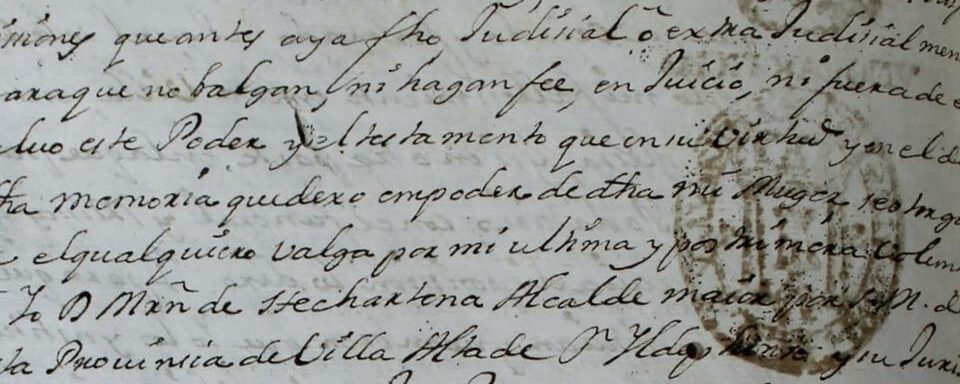 siones que antes aya fho Judisial ô extra Judisial men
araque no balgan, ni hagan fee, en Juicio, ni fuera de e
lvo este Poder y el testamento que en su Virtud y en el d
tha memoria que dexo em poder de dha mi Muger se otorga
el qual quiero valga por mi ultima y postrimera Volun
Yo D Mrñ de Hechartena Alcalde maior por S. M. d
ta Provinsia de Villa Alta de Sn Yldephonso y su Juris